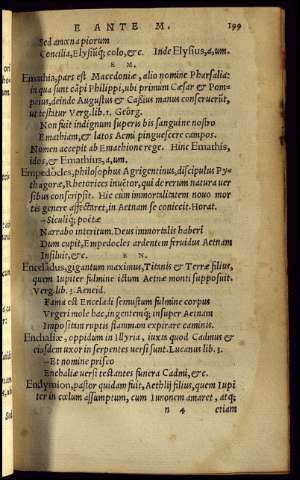 E ANTE M. 199
Sed amœna piorum
Concilia, Elysiúq; colo, &c. Inde Elysius, a, um.
E M.
Emathia, pars est Macedoniæ, alio nomine Pharsalia:
in qua sunt cāpi Philippi, ubi primum Cæsar & Pom-
peius, deinde Augustus & Cassius manus conseruerūt,
ut testatur Verg. lib. 1. Geōrg.
Non fuit indignum superis bis sanguine nostro
Emathiam, & latos Aemi pinguescere campos.
Nomen accepit ab Emathione rege. Hinc Emathis,
ides, & Emathius, a, um.
Empedocles, philosophus Agrigentinus, discipulus Py-
thagoræ, Rhetorices inuētor, qui de rerum natura uer
sibus conscripsit. Hic cum immortalitatem nouo mor
tis genere affectaret, in Aetnam se coniecit. Horat.
–Siculiq; poëtæ
Narrabo interitum. Deus immortalis haberi
Dum cupit, Empedocles ardentem feruidus Aetnam
Insiluit, &c. E N.
Enceladus, gigantum maximus, Titanis & Terræ filius,
quem Iupiter fulmine ictum Aetnæ monti supposuit.
Verg. lib. 3. Aeneid.
Fama est Enceladi semustum fulmine corpus
Vrgeri mole hac, ingentemq; insuper Aetnam
Impositam ruptis flammam expirare caminis.
Enchaliæ, oppidum in Illyria, iuxta quod Cadmus &
eiusdem uxor in serpentes uersi sunt. Lucanus lib. 3.
–Et nomine prisco
Enchaliæ uersi testantes funera Cadmi, &c.
Endymion, pastor quidam fuit, Aethlij filius, quem Iupi
ter in cœlum assumptum, cum Iunonem amaret, atq;
n 4 etiam